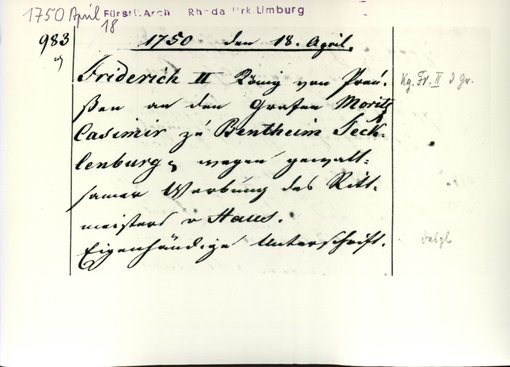 1750 April 18
Fürstl. Arch Rheda Urk. Limburg
983
1750 den 18. April.
Friderich II König von Preu-
ßen an den Grafen Moritz
Casimir zu Bentheim Teck-
lenburg, wegen gewalt-
samer Werbung des Ritt-
meisters v Haus.
Eigenhändige Unterschrift.
Kg. Fr. II d. Gr.